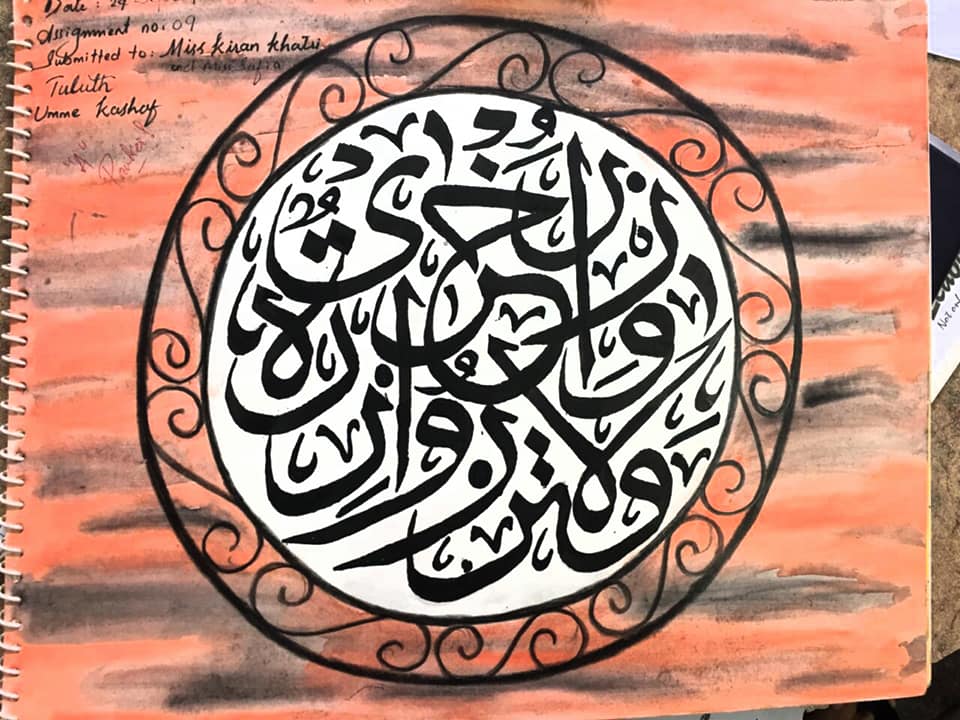 Date: 24
Assignment no: 09
Submitted to: Miss Kiran Khatri
and Miss Safia
Tuluth
Umme Kashaf
ولا تزر وازرة
وزر أخرى
Not